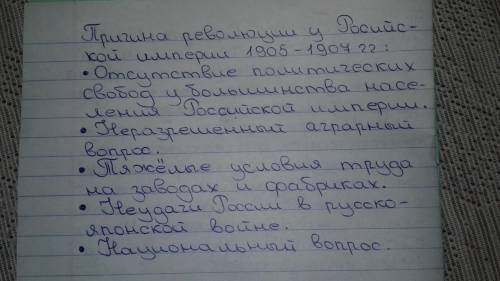 Причина революции у Росийс-
кой империи 1905-1907 гг:
• Отсутствие политических
свобод у большинства насе-
ления Российской империи.
• Неразрешенный аграрный
вопрос.
• Тяжёлые условия труда
на заводах и фабриках.
• Неудачи России в русско-
японской войне.
• Национальный вопрос.